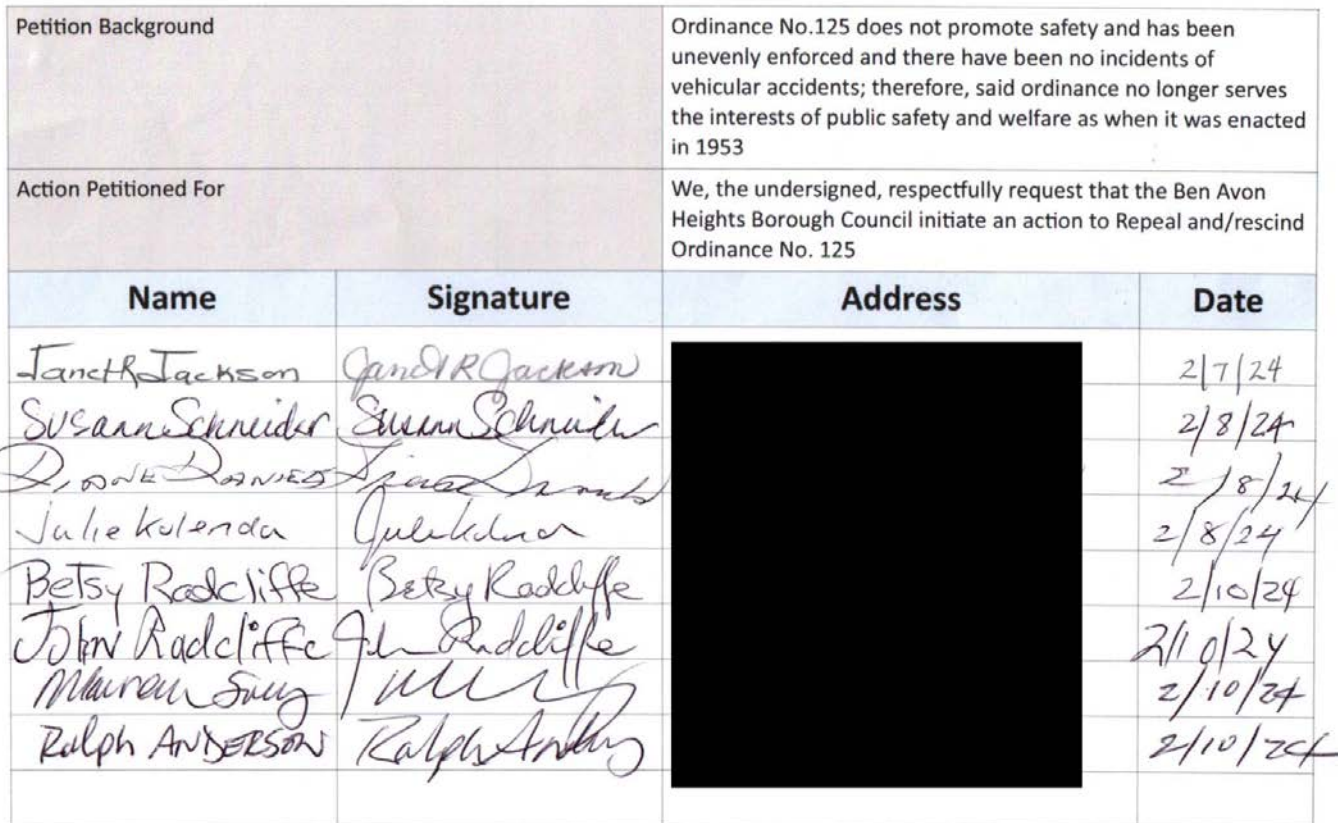 Petition Background
Ordinance No.125 does not promote safety and has been
unevenly enforced and there have been no incidents of
vehicular accidents; therefore, said ordinance no longer serves
the interests of public safety and welfare as when it was enacted
in 1953
Action Petitioned For
We, the undersigned, respectfully request that the Ben Avon
Heights Borough Council initiate an action to Repeal and/rescind
Ordinance No. 125
Name Signature Address Date
Janet R Jackson Janet R Jackson 2/7/24
Susann Schneider Susann Schneider 2/8/24
DIANE DANIELS 2/8/24
Julie Kulenda 2/8/24
Betsy Radcliffe Betsy Radcliffe 2/10/24
John Radcliffe John Radcliffe 2/10/24
Maureen 2/10/24
Ralph ANDERSON Ralph 2/10/24